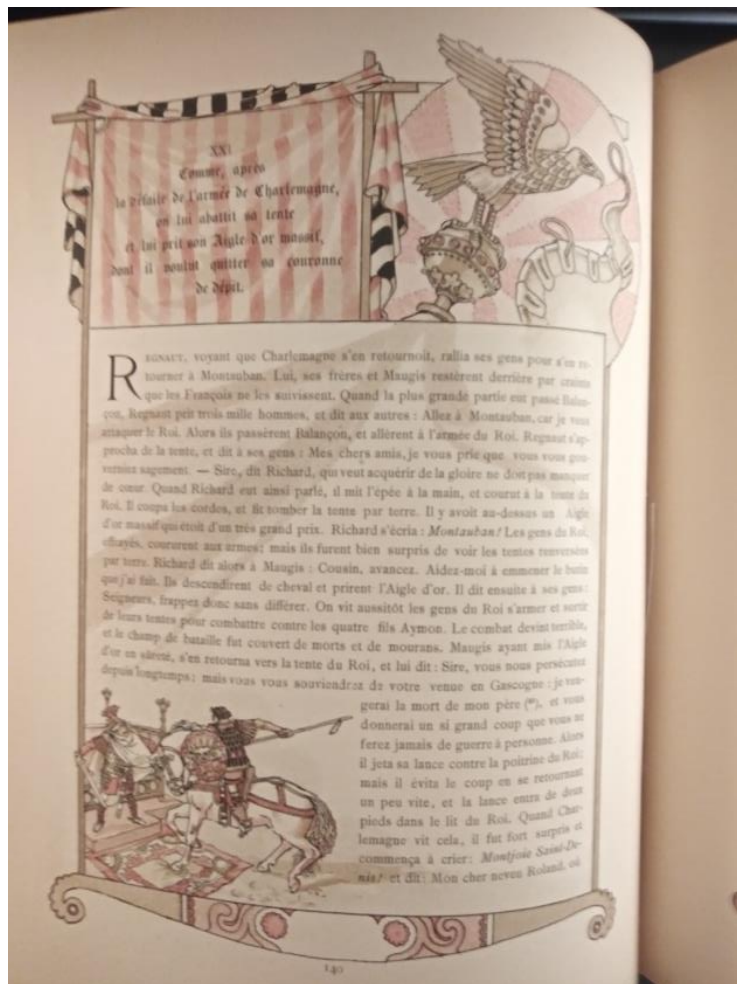 XXI
Comme, après
la défaite de l'armée de Charlemagne,
on lui abattit sa tente
et lui prit son Aigle d'or massif,
dont il voulut quitter sa couronne
de dépit.
REGNAUT, voyant que Charlemagne s'en retournoit, rallia ses gens pour s'en re-
tourner à Montauban. Lui, ses frères et Maugis restèrent derrière par crainte
que les François ne les suivissent. Quand la plus grande partie eut passé Balan-
çon, Regnaut prit trois mille hommes, et dit aux autres : Allez à Montauban, car je veux
attaquer le Roi. Alors ils passèrent Balançon, et allèrent à l'armée du Roi. Regnaut s'ap-
procha de la tente, et dit à ses gens : Mes chers amis, je vous prie que vous vous gou-
verniez sagement. — Sire, dit Richard, qui veut acquérir de la gloire ne doit pas manquer
de cœur. Quand Richard eut ainsi parlé, il mit l'épée à la main, et courut à la tente du
Roi. Il coupa les cordes, et fit tomber la tente par terre. Il y avoit au-dessus un Aigle
d'or massif qui étoit d'un très grand prix. Richard s'écria : Montauban ! Les gens du Roi,
effrayés, coururent aux armes ; mais ils furent bien surpris de voir les tentes renversées
par terre. Richard dit alors à Maugis : Cousin, avancez. Aidez-moi à emmener le butin
que j'ai fait. Ils descendirent de cheval et prirent l'Aigle d'or. Il dit ensuite à ses gens :
Seigneurs, frappez donc sans différer. On vit aussitôt les gens du Roi s'armer et sortir
de leurs tentes pour combattre contre les quatre fils Aymon. Le combat devint terrible,
et le champ de bataille fut couvert de morts et de mourans. Maugis ayant mis l'Aigle
d'or en sûreté, s'en retourna vers la tente du Roi, et lui dit : Sire, vous nous persécutez
depuis longtemps ; mais vous vous souviendrez de votre venue en Gascogne : je ven-
gerai la mort de mon père, et vous
donnerai un si grand coup que vous ne
ferez jamais de guerre à personne. Alors
il jeta sa lance contre la poitrine du Roi ;
mais il évita le coup en se retournant
un peu vite, et la lance entra de deux
pieds dans le lit du Roi. Quand Char-
lemagne vit cela, il fut fort surpris et
commença à crier : Montjoie Saint-De-
nis ! et dit : Mon cher neveu Roland, où
140